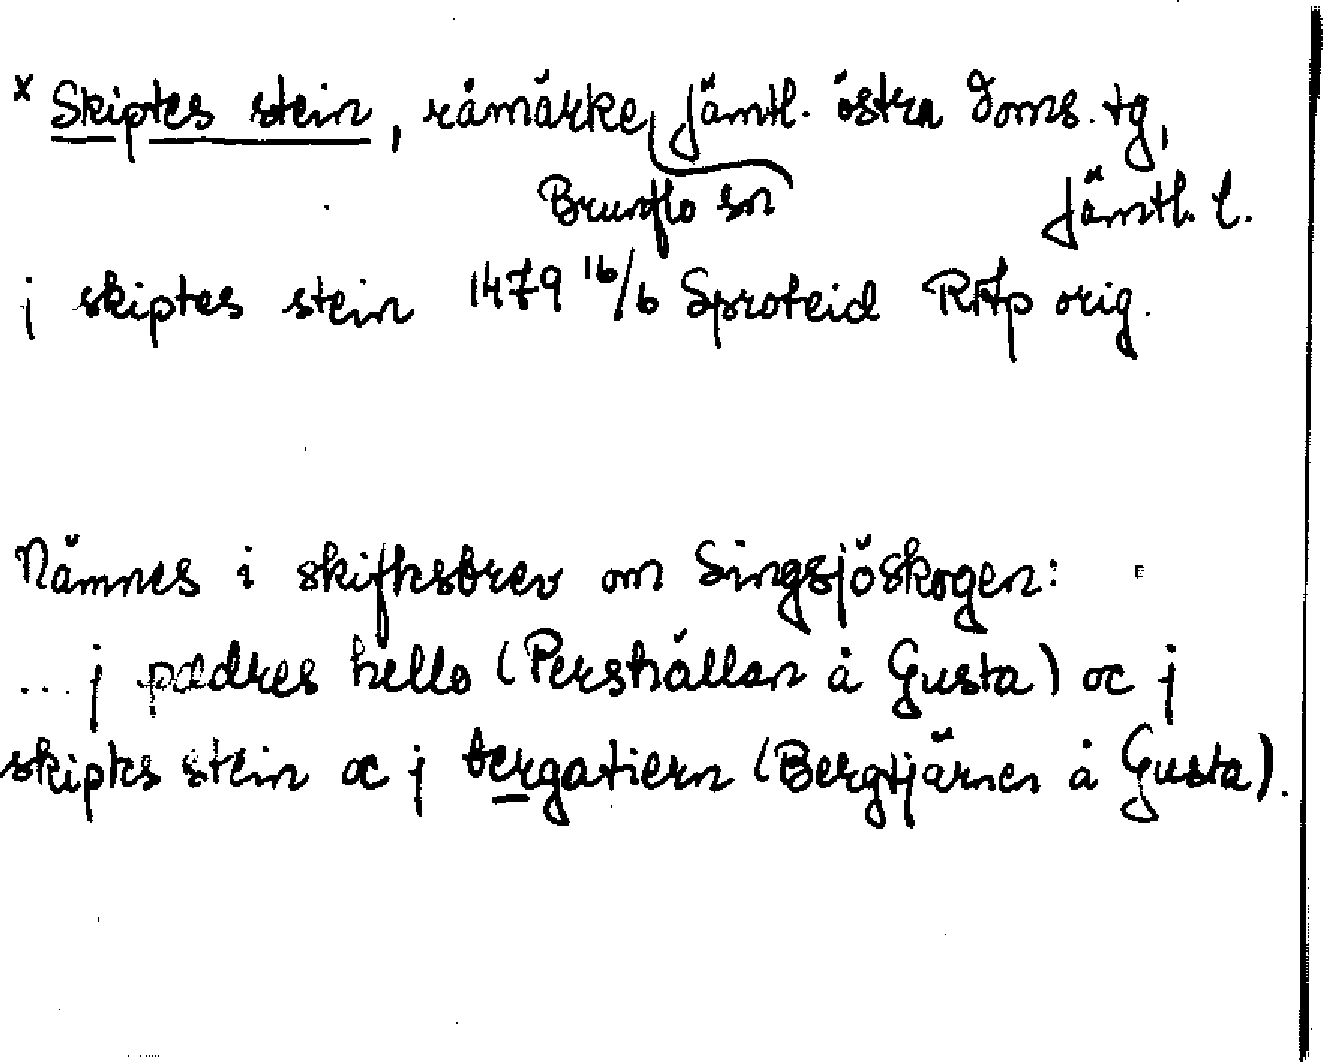 x Skiptes stein, råmärke, Jämtl. östra Doms. tg,
Brunflo sn Jämtl. l.
j skiptes stein 1479 16/6 Sproteid RAp orig.
Nämnes i skiftesbrev om Singsjöskogen:
... j pædres hello (Pershällan å Gusta) oc j
skiptes stein oc j bergatiern (Bergtjärnen å Gusta).